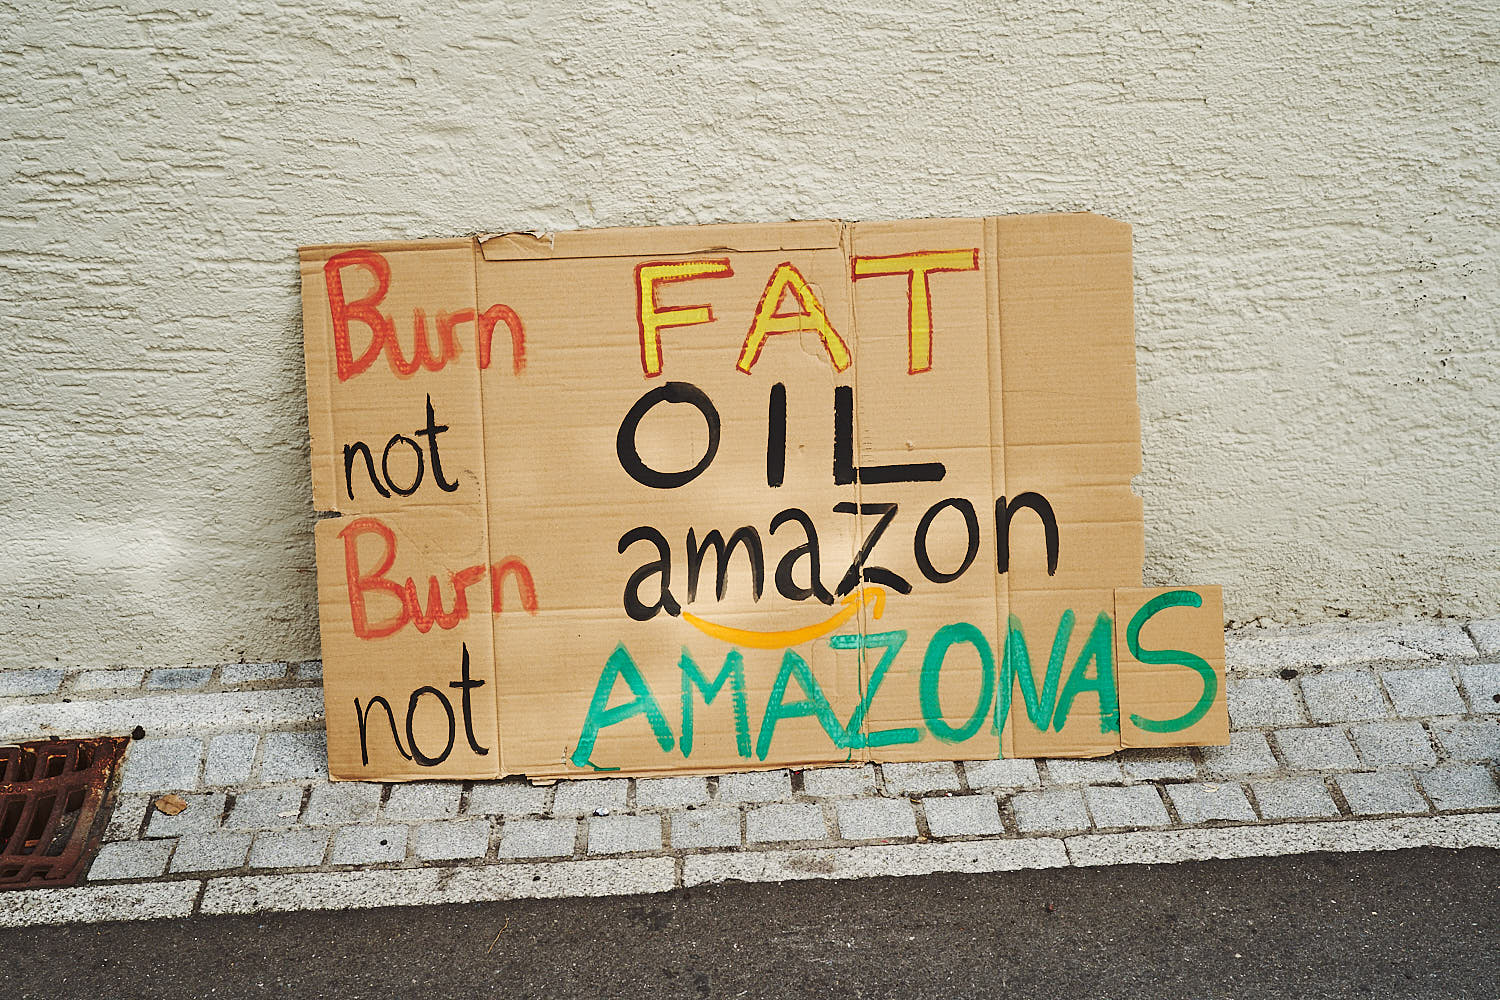 Burn FAT
not OIL
Burn amazon
not AMAZONAS